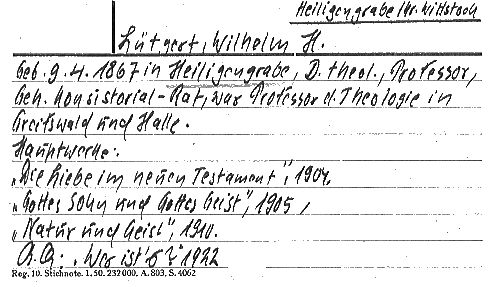 Heiligengrabe Kr. Wittstock
Lütgert, Wilhelm H.
Geb. 9.4.1867 in Heiligengrabe, D. theol., Professor,
Geh. Konsistorial-Rat, war Professor d. Theologie in
Greifswald und Halle.
Hauptwerke:
„Die Liebe im neuen Testament", 1904,
„Gottes Sohn und Gottes Geist", 1905,
„Natur und Geist", 1910.
„Wer ist's?" 1922
Reg. 10. Stichnote. 1. 50. 232000. A. 803, S. 4062